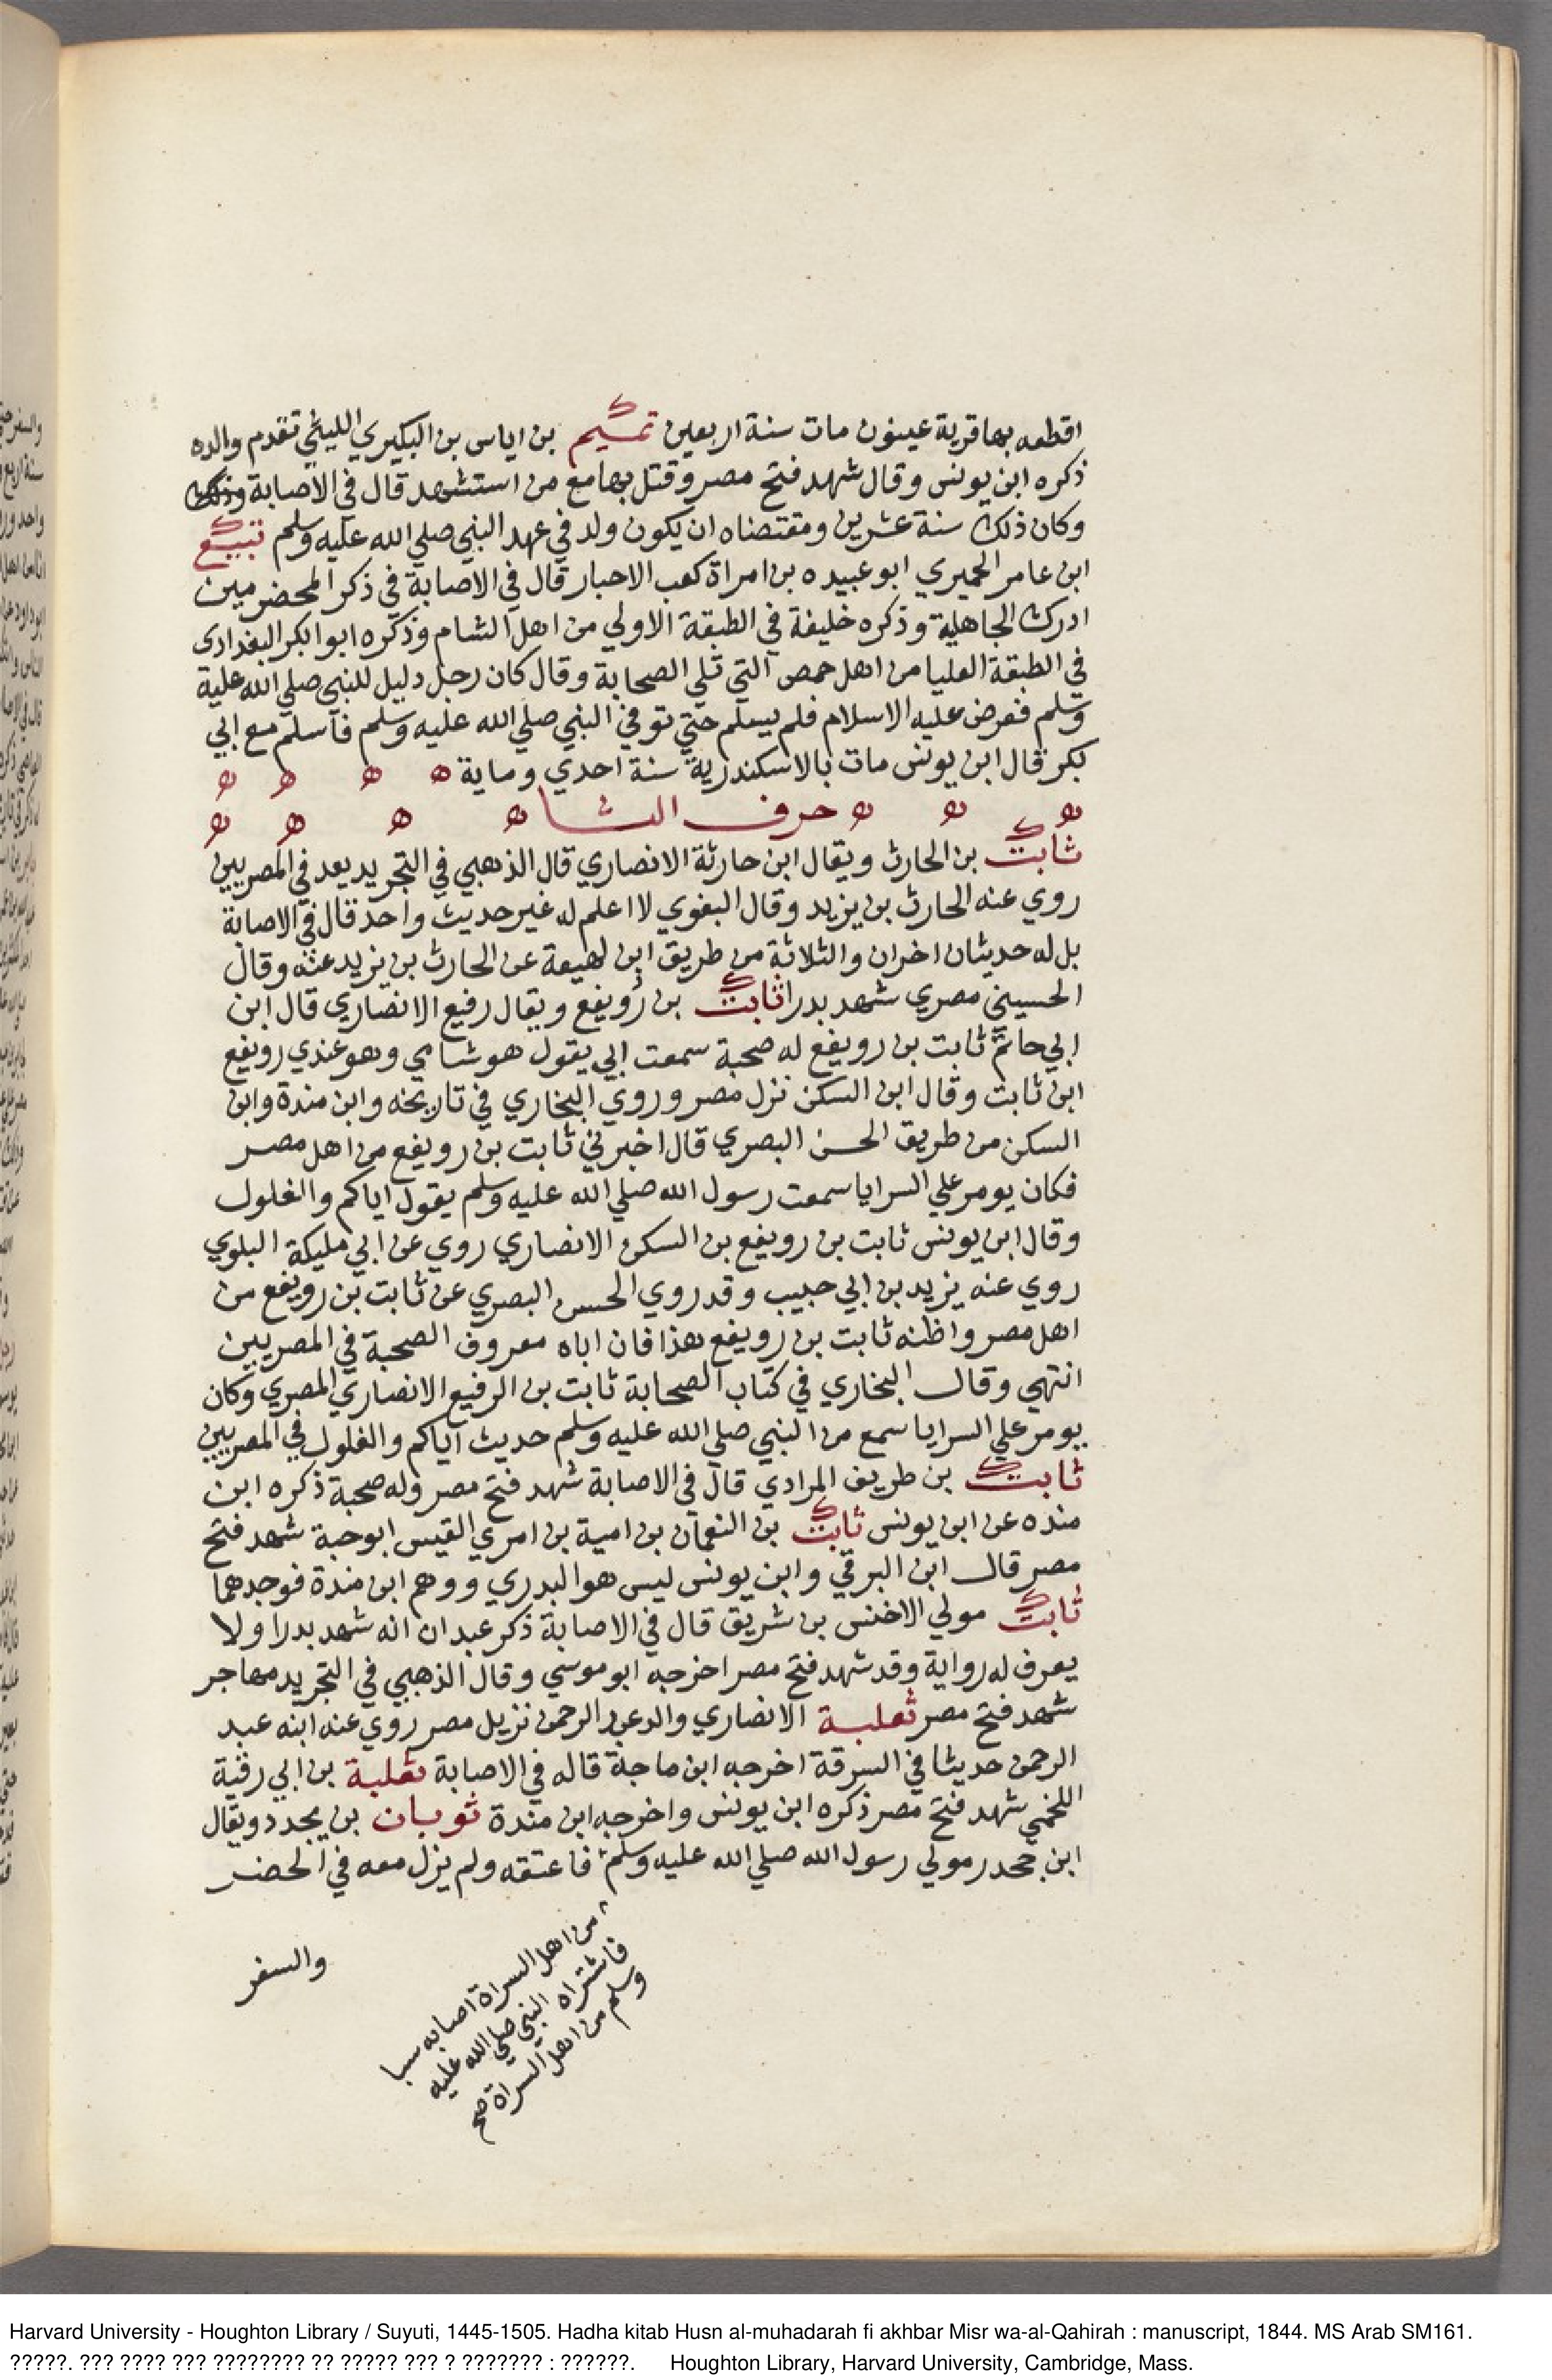 اقطعه بها قرية عينون مات سنة اربعين تميم بن اياس بن البكيري الليثي تقدم والده
ذكره ابن يونس وقال شهد فتح مصر وقتل بها مع من استشهد قال في الاصابة وذلك
وكان ذلك سنة عشرين ومقتضاه ان يكون ولد في عهد النبي صلي الله عليه وسلم تبيع
ابن عامر الحميري ابو عبيده بن امراة كعب الاحبار قال في الاصابة في ذكر المخضرمين
ادرك الجاهلية وذكره خليفة في الطبقة الاولي من اهل الشام وذكره ابوا بكر البغدادي
في الطبقة العليا من اهل حمص التي تلي الصحابة وقال كان رجل دليل للنبي صلي الله علية
وسلم فعرض عليه الاسلام فلم يسلم حتي توفي النبي صلي الله عليه وسلم فاسلم مع ابي
بكر قال ابن يونس مات بالاسكندرية سنة احدي وماية ه ه ه ه
ه ه ه حرف الثا ه ه ه ه
ثابت بن الحارث ويقال ابن حارثة الانصاري قال الذهبي في التجريد يعد في المصريين
روي عنه الحارث بن يزيد وقال البغوي لا اعلم له غير حديث واحد قال في الاصابة
بل له حديثان اخران والثلاثة من طريق ابن لهيعة عن الحارث بن يزيد عنه وقال
الحسيني مصري شهد بدرا ثابت بن رويفع ويقال رفيع الانصاري قال ابن
ابي حاتم ثابت بن رويفع له صحبة سمعت ابي يقول هو شامي وهو عندي رويفع
ابن ثابت وقال ابن السكن نزل مصر وروي البخاري في تاريخه وابن مندة وابن
السكن من طريق الحسن البصري قال اخبرني ثابت بن رويفع من اهل مصر
فكان يومر علي السرايا سمعت رسول الله صلي الله عليه وسلم يقول اياكم والغلول
وقال ابن يونس ثابت بن رويفع بن السكن الانصاري روي عن ابي مليكة البلوي
روي عنه يزيد بن ابي حبيب وقد روي الحسن البصري عن ثابت بن رويفع من
اهل مصر واظنه ثابت بن رويفع هذا فان اباه معروف الصحبة في المصريين
انتهي وقال البخاري في كتاب الصحابة ثابت بن الرفيع الانصاري المصري وكان
يومر علي السرايا سمع من النبي صلي الله عليه وسلم حديث اياكم والغلول في المصريين
ثابت بن طريف المرادي قال في الاصابة شهد فتح مصر وله صحبة ذكره ابن
منده عن ابن يونس ثابت بن النعمان بن امية بن امري القيس ابو حبة شهد فتح
مصر قال ابن البرقي وابن يونس ليس هو البدري ووهم ابن مندة فوجدهما
ثابت مولي الاخنس بن شريق قال في الاصابة ذكر عبدان انه شهد بدرا ولا
يعرف له رواية وقد شهد فتح مصر اخرجه ابو موسي وقال الذهبي في التجريد مهاجر
شهد فتح مصر ثعلبة الانصاري والد عبد الرحمن نزيل مصر روي عنه ابنه عبد
الرحمن حديثا في السرقة اخرجه ابن ماجة قاله في الاصابة ثعلبة بن ابي رقية
اللخمي شهد فتح مصر ذكره ابن يونس واخرجه ابن مندة ثوبان بن يجدد ويقال
ابن جحدر مولي رسول الله صلي الله عليه وسلم فاعتقه ولم يزل معه في الحضر
من اهل السراة اصابه سبا
فاشتراه النبي صلي الله عليه
وسلم من اهل السراة صح
والسفر
Harvard University - Houghton Library / Suyuti, 1445-1505. Hadha kitab Husn al-muhadarah fi akhbar Misr wa-al-Qahirah : manuscript, 1844. MS Arab SM161.
?????. ??? ???? ??? ???????? ?? ????? ??? ? ??????? : ??????. Houghton Library, Harvard University, Cambridge, Mass.